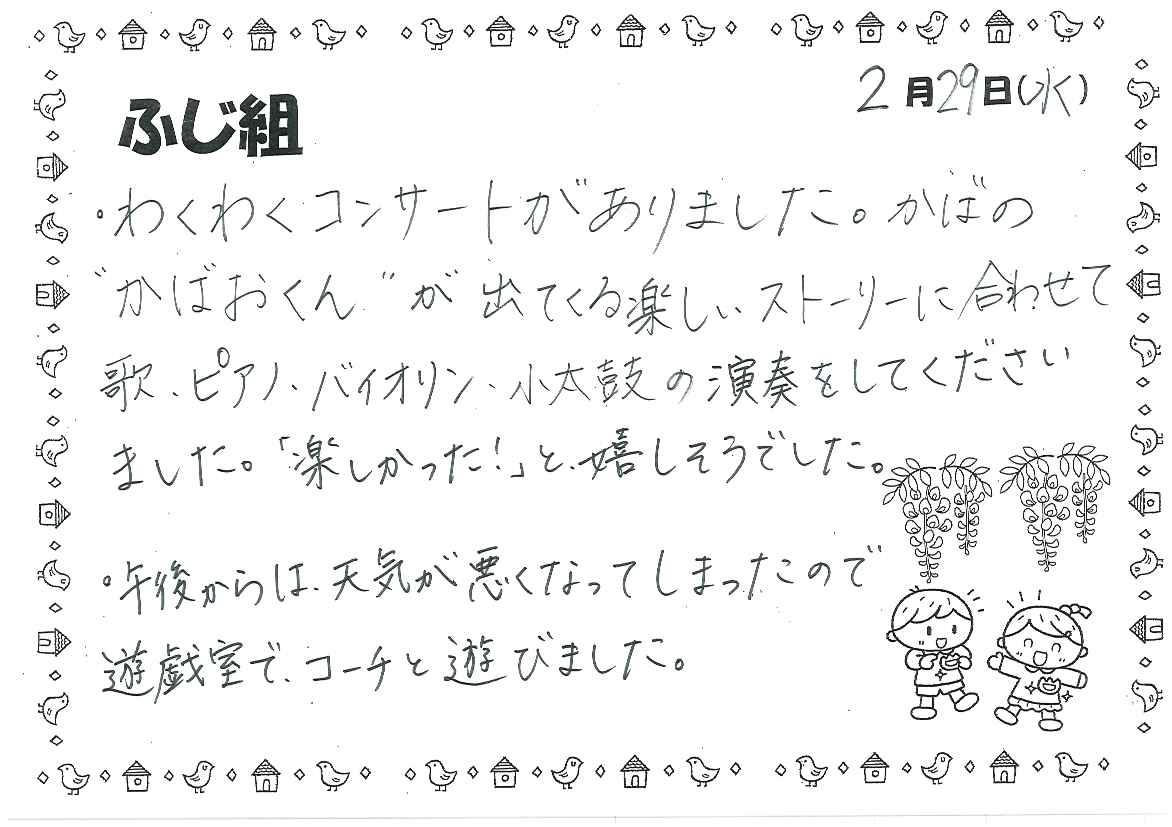 2月29日(水)
ふじ組
・わくわくコンサートがありました。かばの
"かばおくん"が出てくる楽しいストーリーに合わせて
歌、ピアノ、バイオリン、小太鼓の演奏をしてください
ました。「楽しかった!」と、嬉しそうでした。
・午後からは、天気が悪くなってしまったので
遊戯室で、コーチと遊びました。